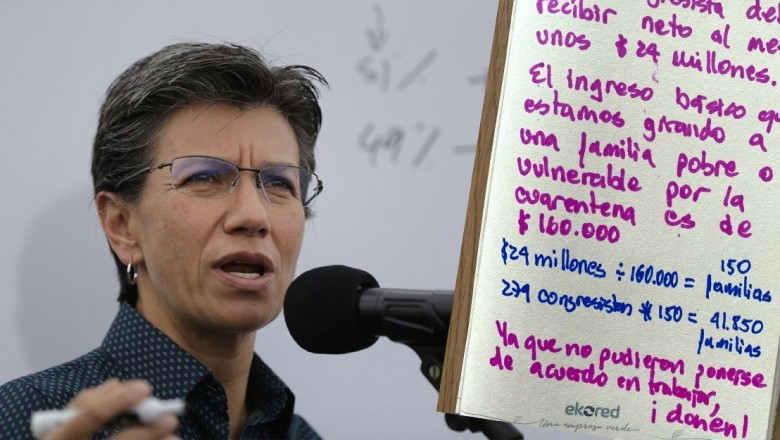 51%
49% -
recibir neto al
unos $24 millones.
El ingreso básico
estamos girando a
una familia pobre o
vulnerable por la
cuarentena es de
$160.000
$24 millones ÷ 160.000 = 150 familias
279 congresistas * 150 = 41.850
familias
Ya que no pudieron ponerse
de acuerdo en trabajar,
¡donen!
ekored
Una empresa verde